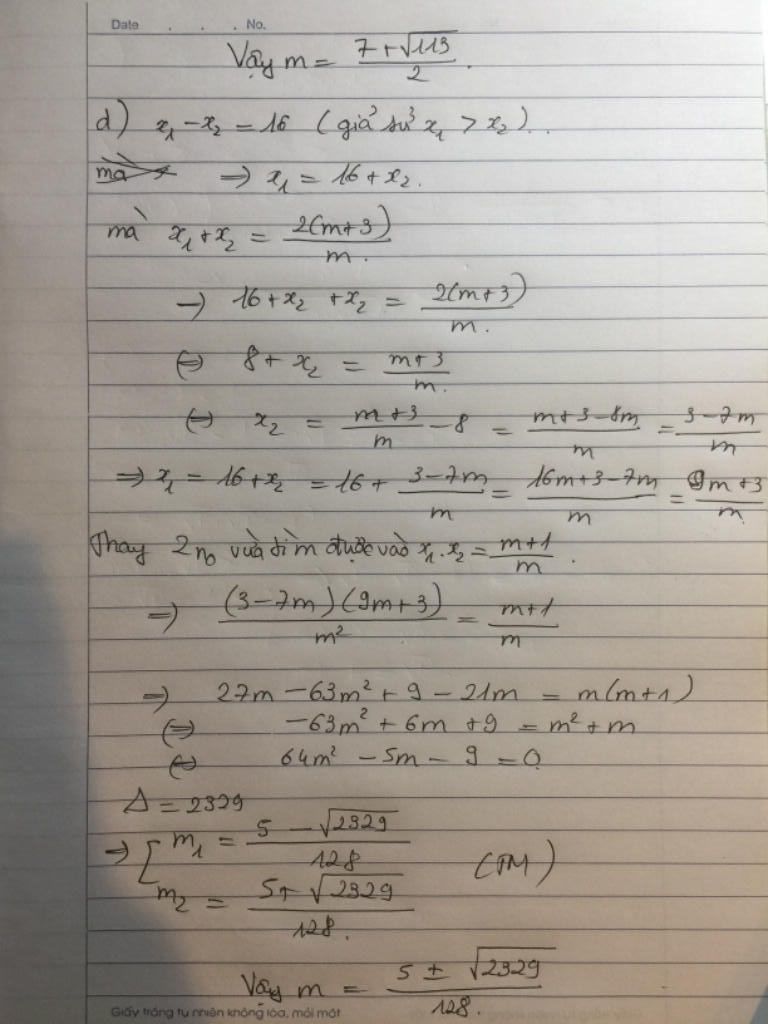 Date . . . No.
Vậy m = (7 + √113)/2.
d) x₁ - x₂ = 16 (giả sử x₁ > x₂)..
mà ⇒ x₁ = 16 + x₂.
mà x₁ + x₂ = 2(m+3)/m.
→ 16 + x₂ + x₂ = 2(m+3)/m.
⇔ 8 + x₂ = (m+3)/m.
⇔ x₂ = (m+3)/m - 8 = (m+3-8m)/m = (3-7m)/m
⇒ x₁ = 16 + x₂ = 16 + (3-7m)/m = (16m+3-7m)/m = (9m+3)/m
Thay 2 no vừa tìm được vào x₁.x₂ = (m+1)/m.
⇒ (3-7m)(9m+3)/m² = (m+1)/m
⇒ 27m - 63m² + 9 - 21m = m(m+1)
⇔ -63m² + 6m + 9 = m² + m
⇔ 64m² - 5m - 9 = 0
Δ = 2329
⇒ [ m₁ = (5 - √2329)/128 (TM)
m₂ = (5 + √2329)/128.
Vậy m = (5 ± √2329)/128.
Giấy trắng tự nhiên không lóa, mỏi mắt